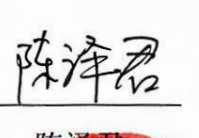 陈泽君